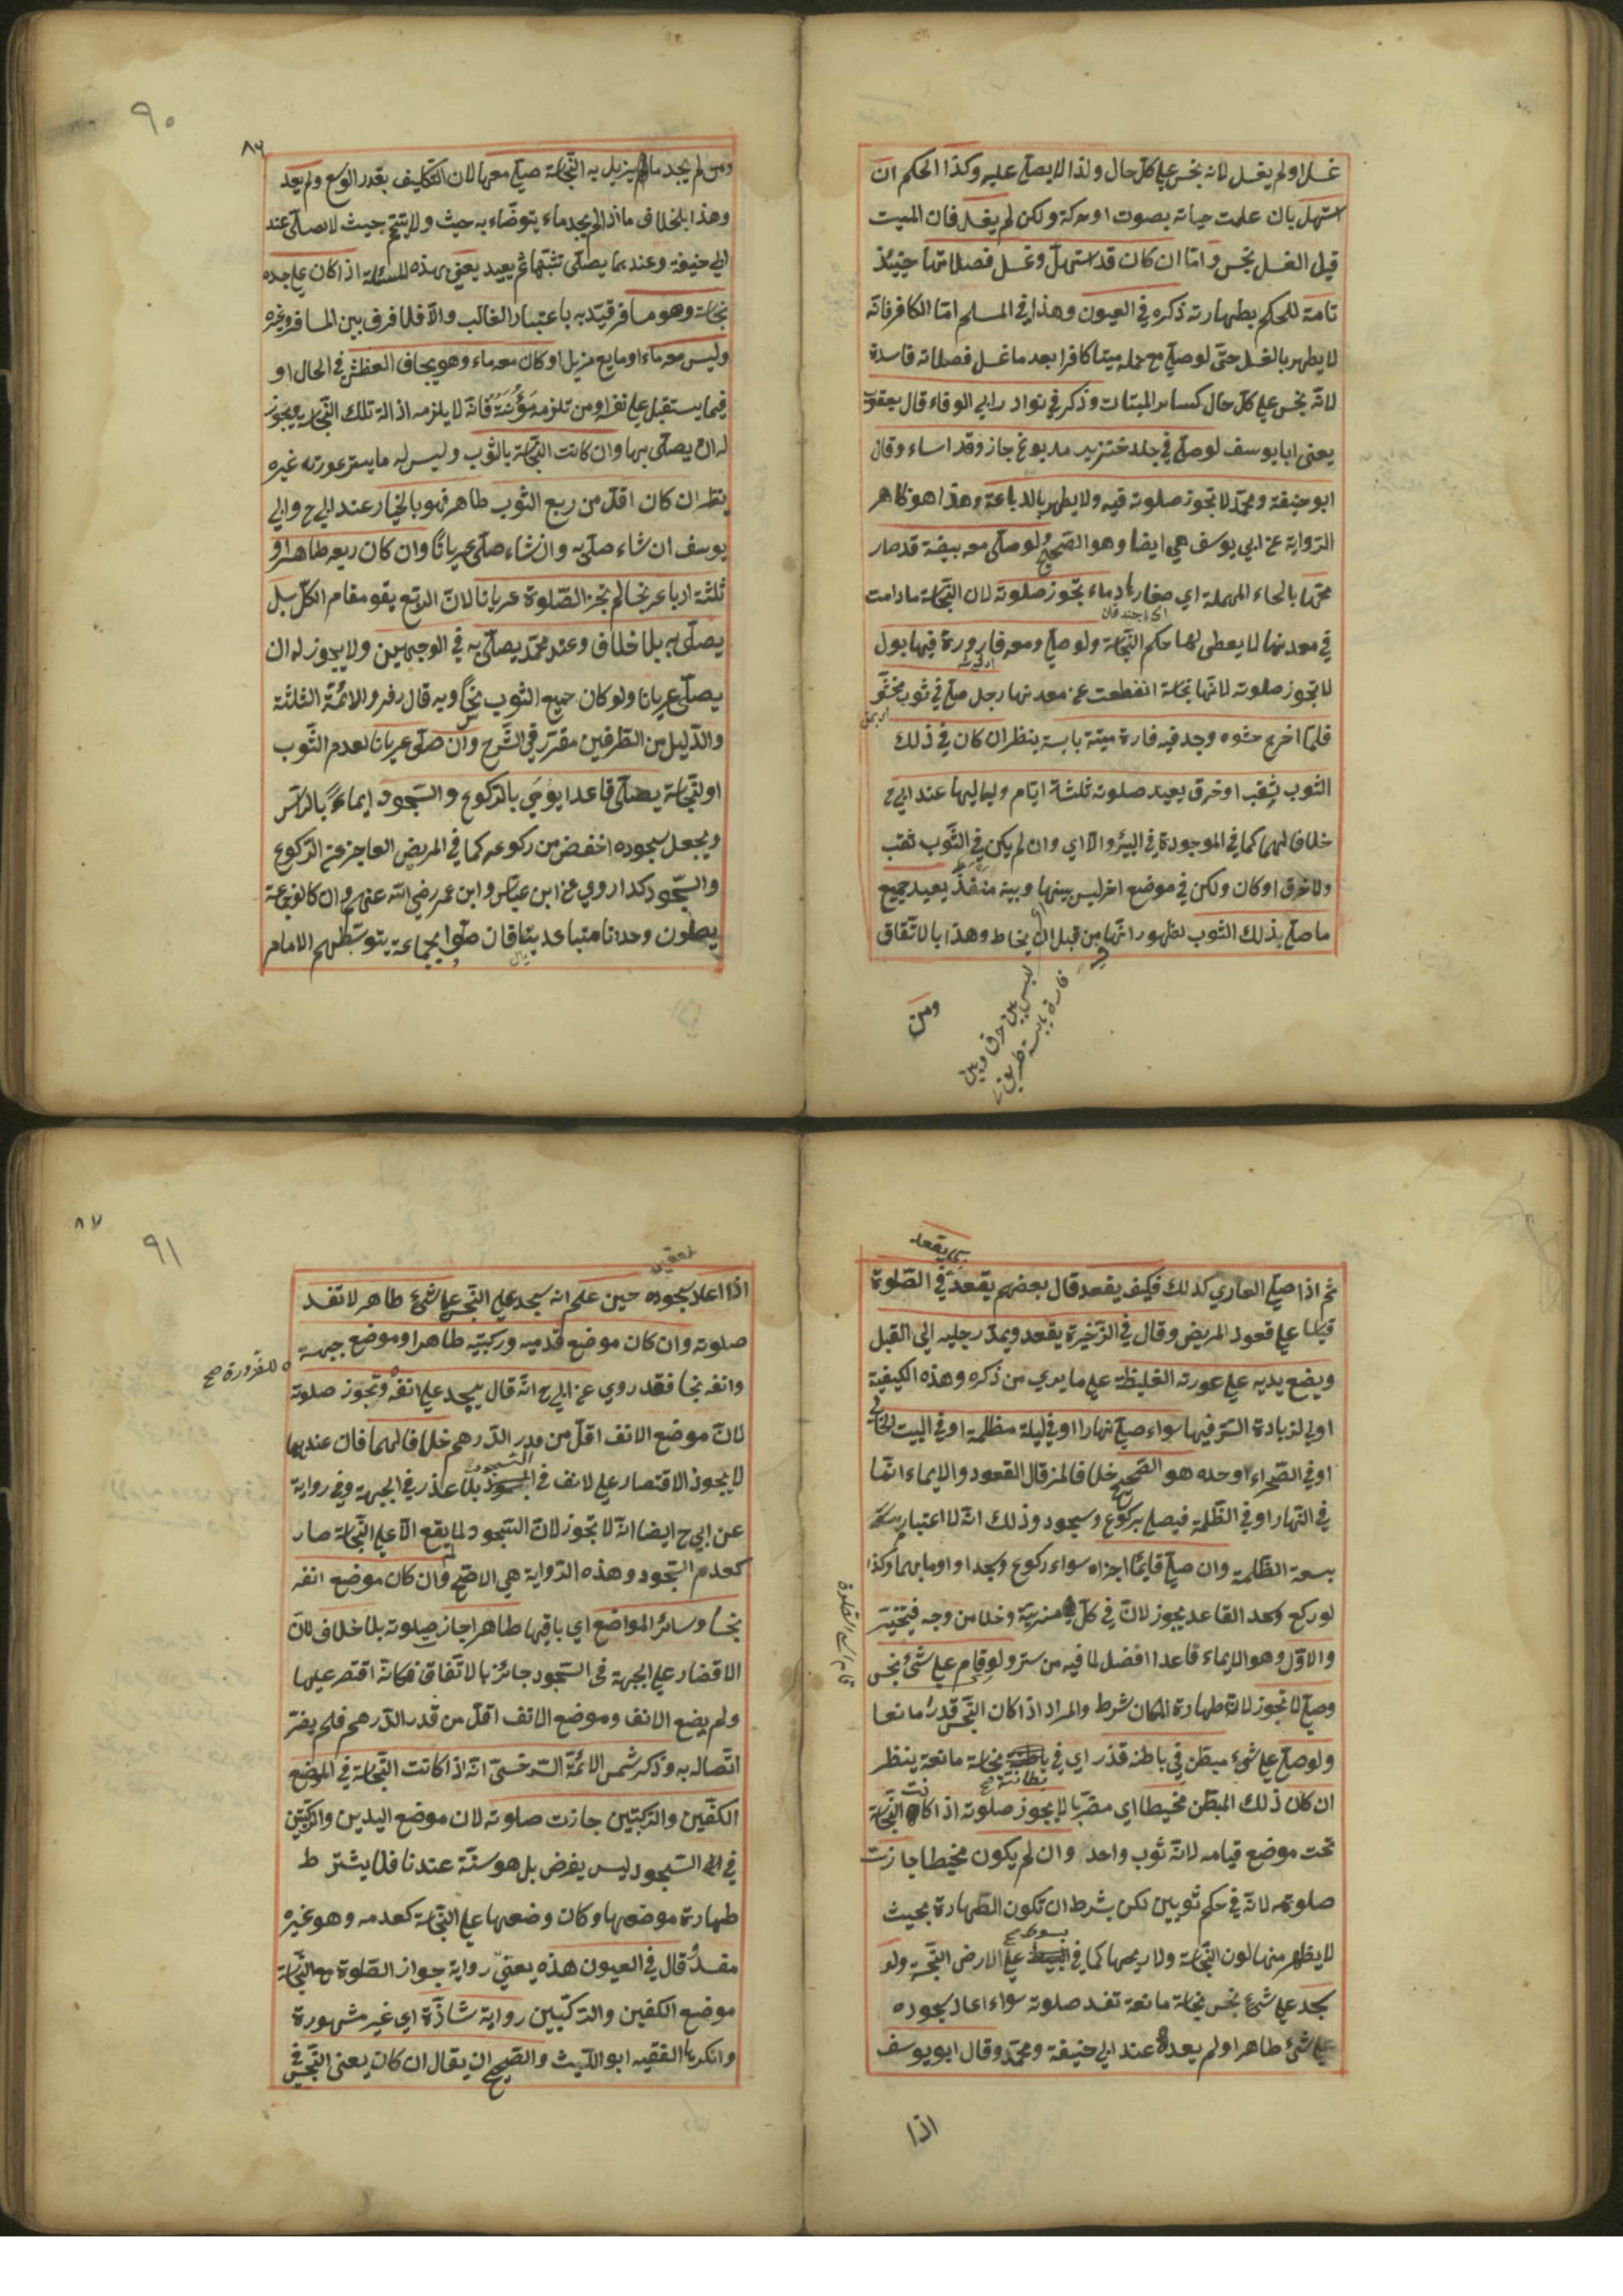 غسل او لم يغسل لانه نجس على كل حال ولذا لا يصلى عليه وكذا الحكم ان
استهل بان علمت حياته بصوت او حركة ولكن لم يغسل فان الميت
قبل الغسل نجس واما ان كان قد استهل وغسل فصلاتها حينئذ
تامة للحكم بطهارته ذكره في العيون وهذا في المسلم اما الكافر فانه
لا يطهر بالغسل حتى لو صلى مع حمله ميتا كافرا بعد ما غسل فصلاته فاسدة
لانه نجس على كل حال كسائر الميتات وذكر في نوادر ابي الوفاء قال يعقوب
يعنى ابا يوسف لو صلى في جلد خنزير مدبوغ جاز وقد اساء وقال
ابو حنيفة ومحمد لا تجوز صلوته فيه ولا يطهر بالدباغة وهذا هو ظاهر
الرواية عن ابي يوسف هي ايضا وهو الصحيح ولو صلى معه بيضة قد صار
محها بالحاء المهملة اي صفارها دماء تجوز صلوته لان النجاسة ما دامت
في معدنها لا يعطى لها حكم النجاسة ولو صلى ومعه قارورة فيها بول
لا تجوز صلوته لانها نجاسة انفطعت عن معدنها رجل صلى في ثوب محشو
فلما اخرج حشوه وجد فيه فارة ميتة يابسة ينظر ان كان في ذلك
الثوب ثقب او خرق يعيد صلوته ثلثة ايام ولياليها عند ابي ح
خلافا لهما كما في الموجودة في البئر والا اي وان لم يكن في الثوب ثقب
ولا خرق او كان ولكن في موضع اخر ليس بينها وبينه منفذ يعيد جميع
ما صلى بذلك الثوب لظهور انها من قبل ان يخاط وهذا بالاتفاق
ليس بين خرق وبين
فارة يابسة طريق
ومن
٩٠
٨٦
ومن لم يجد ما يزيل به النجاسة صلى معها لان التكليف بقدر الوسع ولم يعد
وهذا بخلاف ما اذا لم يجد ماء يتوضاء به حيث ولا يتيمم حيث لا يصلى عند
ابي حنيفة وعندهما يصلى تشبها ثم يعيد يعني بهذه المسئلة اذا كان على جسده
نجاسة وهو مسافر قيد به باعتبار الغالب والا فلا فرق بين المسافر وغيره
وليس معه ماء او مايع مزيل او كان معه ماء وهو يخاف العطش في الحال او
فيما يستقبل على نفسه او من تلزمه مؤنته فانه لا يلزمه ازالة تلك النجاسة ويجوز
له ان يصلى بها وان كانت النجاسة بالثوب وليس له ما يستر عورته غيره
ينظر ان كان اقل من ربع الثوب طاهر فهو بالخيار عند ابي ح وابي
يوسف ان شاء صلى به وان شاء صلى عريانا وان كان ربعه طاهرا و
ثلثة ارباعه نجسا لم تجز الصلوة عريانا لان الربع يقوم مقام الكل بل
يصلى به بلا خلاف وعند محمد يصلى به في الوجهين ولا يجوز له ان
يصلى عريانا ولو كان جميع الثوب نجسا وبه قال زفر والائمة الثلثة
والدليل من الطرفين مقرر في الشرح وان صلى عريانا لعدم الثوب
او لنجاسته يصلى قاعدا يومي بالركوع والسجود ايماء بالراس
ويجعل سجوده اخفض من ركوعه كما في المريض العاجز عن الركوع
والسجود كذا روي عن ابن عباس وابن عمر رضي الله عنهم وان كانوا جماعة
يصلون وحدانا متباعدين فان صلوا بجماعة يتوسطهم الامام
ثم اذا صلى العاري كذلك فكيف يقعد قال بعضهم يقعد في الصلوة
قياسا على قعود المريض وقال في الذخيرة يقعد ويمد رجليه الى القبل
ويضع يديه على عورته الغليظة على ما يدري من ذكره وهذه الكيفية
اولى لزيادة الستر فيها سواء صلى نهارا او في ليلة مظلمة او في البيت الخالي
او في الصحراء او حده هو الصحيح خلافا لمن قال القعود والايماء انما
في النهار او في الظلمة فيصلى بركوع وسجود وذلك انه لا اعتبار
بسعة الظلمة وان صلى قايما اجزاه سواء ركوع وسجدا او اومأ بهما وكذا
لو ركع وسجد القاعد يجوز لان في كل مزية وخلا من وجه فيتخير
والاول وهو الايماء قاعدا افضل لما فيه من ستر ولو قام على شئ نجس
وصلى لا تجوز لان طهارة المكان شرط والمراد اذا كان النجس قدرا مانعا
ولو صلى على شئ مبطن في باطنه قذر اي في بطانته صح نجاسة مانعة ينظر
ان كان ذلك المبطن مخيطا اي مضربا لا يجوز صلوته اذا كانت النجاسة
تحت موضع قيامه لانه ثوب واحد وان لم يكون مخيطا جازت
صلوته لانه في حكم ثوبين لكن بشرط ان تكون الطهارة بحيث
لا يظهر منها لون النجاسة ولا ريحها كما في بسوط صح على الارض النجسة ولو
سجد على شئ نجس نجاسة مانعة تفسد صلوته سواء اعاد سجوده
على شئ طاهر او لم يعده عند ابي حنيفة ومحمد وقال ابو يوسف
اذا
٨٧
٩١
اذا اعاد سجوده حين علم انه سجد على النجس على شئ طاهر لا تفسد
صلوته وان كان موضع قدميه وركبتيه طاهرا وموضع جبهته
للضرورة صح
وانفه نجسا فقد روي عن ابي ح انه قال يسجد على انفه وتجوز صلوته
لان موضع الانف اقل من قدر الدرهم خلافا لهما فان عندهما
لا يجوز الاقتصار على لانف في السجود بلا عذر في الجبهة وفي رواية
عن ابي ح ايضا انه لا تجوز لان السجود لما يقع الا على النجاسة صار
كعدم السجود وهذه الرواية هي الاصح وان كان موضع انفه
نجسا وسائر المواضع اي باقيها طاهرا جاز صلوته بلا خلاف لان
الاقتصار على الجبهة في السجود جائز بالاتفاق فكانه اقتصر عليها
ولم يضع الانف وموضع الانف اقل من قدر الدرهم فلم يضر
اتصاله به وذكر شمس الائمة السرخسي انه اذا كانت النجاسة في الموضع
الكفين والركبتين جازت صلوته لان موضع اليدين والركبتين
في السجود ليس يفرض بل هو سنة عندنا فلا يشترط
طهارة موضعها وكان وضعها على النجاسة كعدمه وهو غير
مفسد قال في العيون هذه يعني رواية جواز الصلوة مع النجاسة
موضع الكفين والركبتين رواية شاذة اي غير مشهورة
وانكرها الفقيه ابو الليث والصحيح ان يقال ان كان يعنى النجس في